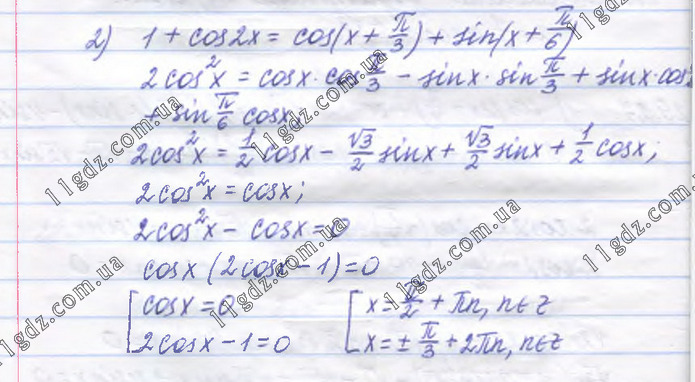 2) 1 + cos2x = cos(x + π/3) + sin(x + π/6)
2cos²x = cosx · cos π/3 − sinx · sin π/3 + sinx · cos
+ sin π/6 cosx;
2cos²x = 1/2 cosx − √3/2 sinx + √3/2 sinx + 1/2 cosx;
2cos²x = cosx;
2cos²x − cosx = 0
cosx (2cosx − 1) = 0
[ cosx = 0 [ x = π/2 + πn, n ∈ z
2cosx − 1 = 0 x = ± π/3 + 2πn, n ∈ z
11gdz.com.ua
11gdz.com.ua
11gdz.com.ua
11gdz.com.ua
11gdz.com.ua
11gdz.com.ua